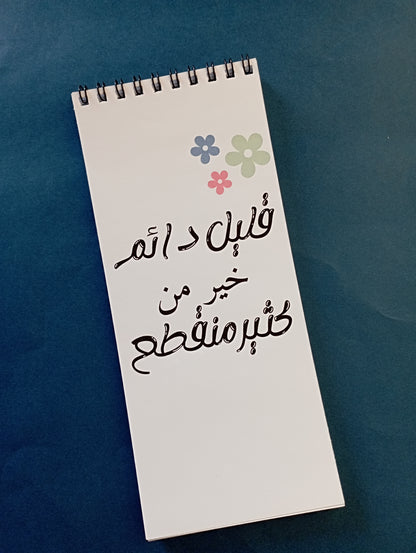 قليل دائم
خير من
كثير منقطع